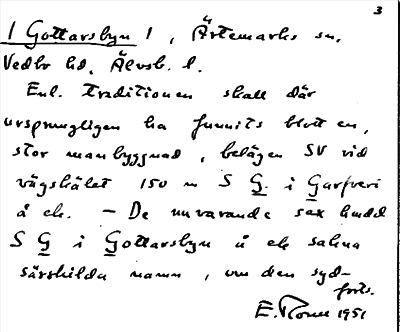 3
/ Gottarsbyn / , Ärtemarks sn,
Vedbo hd, Älvsb. l.
Enl. traditionen skall där
ursprungligen ha funnits blott en,
stor manbyggnad, belägen SV vid
vägskälet 150 m S G. i Garfveri
å ek. — De nuvarande sex hudd
S G i Gottarsbyn å ek sakna
särskilda namn, om den syd-
forts.
E. 1951